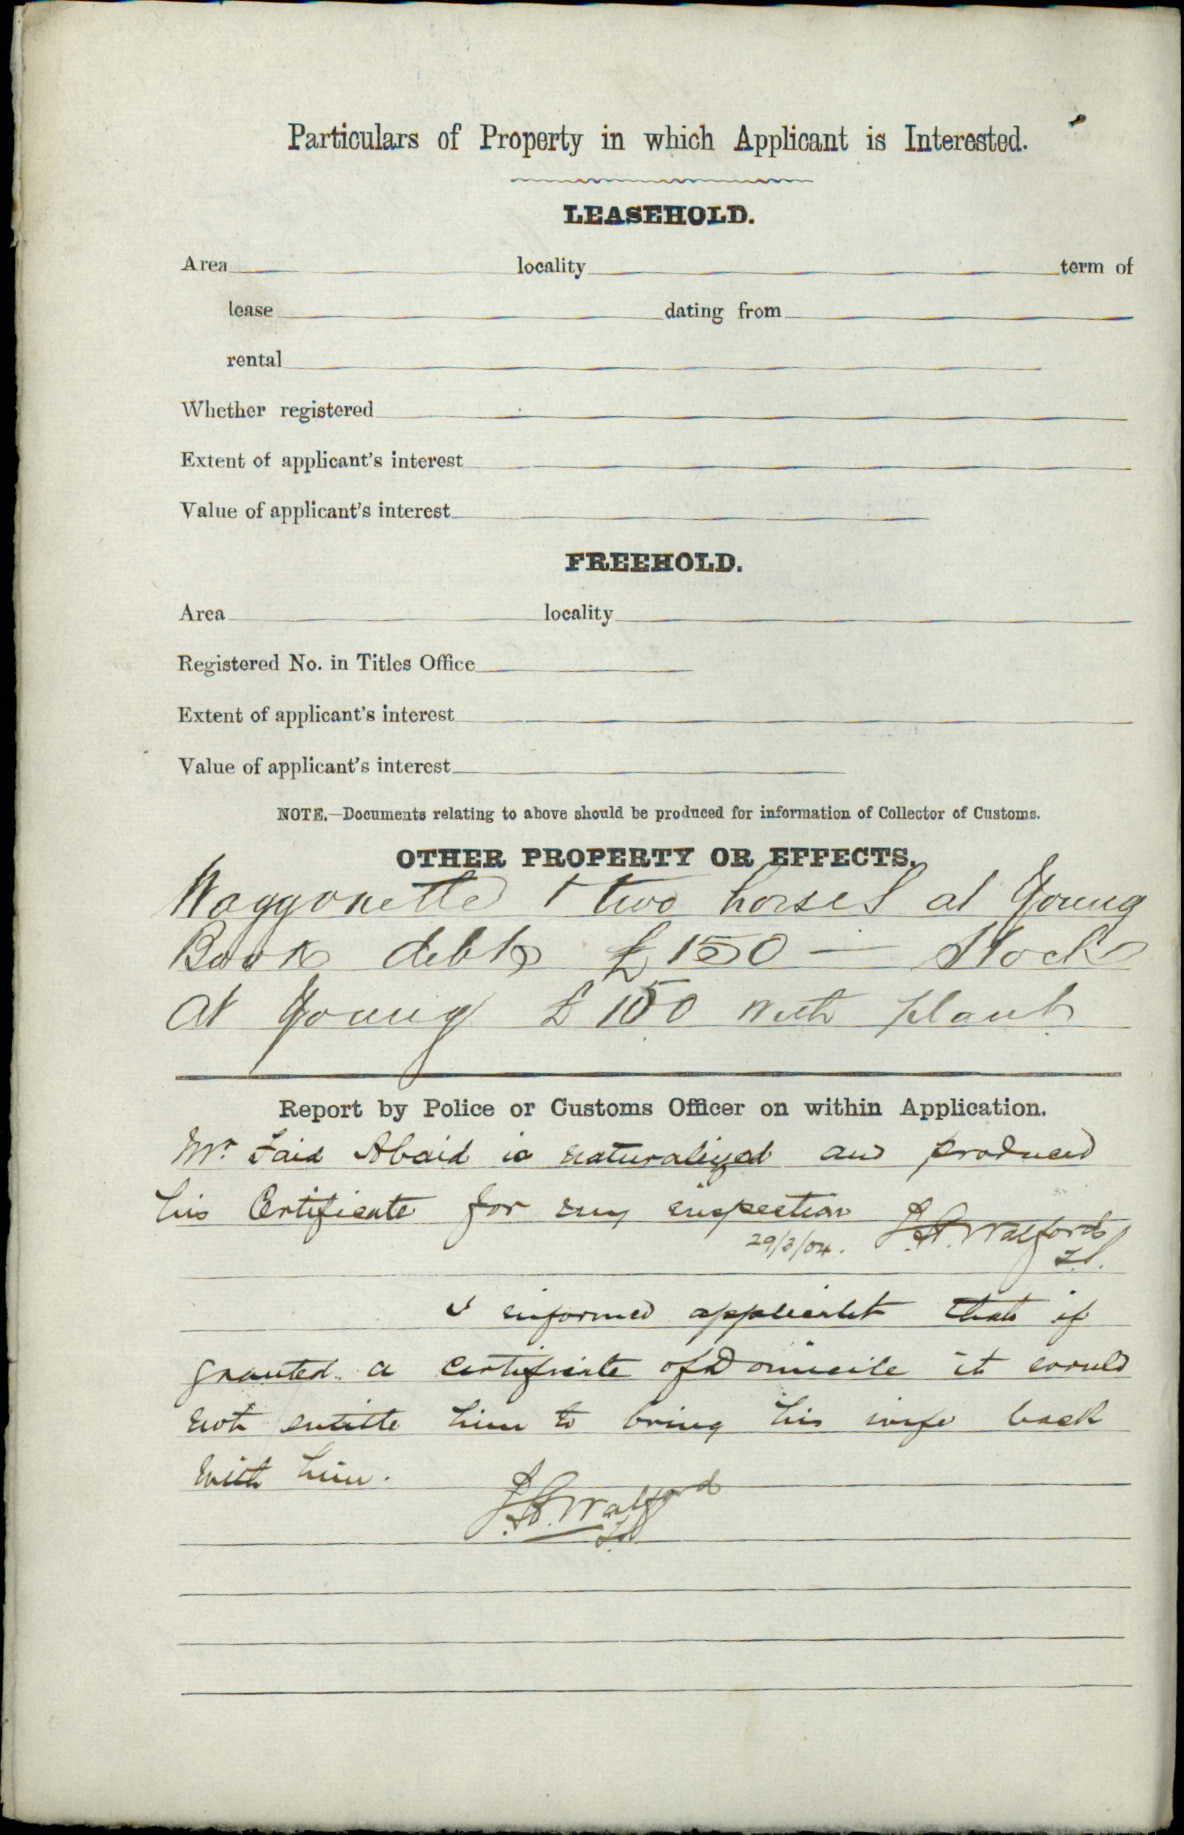 Particulars of Property in which Applicant is Interested.
LEASEHOLD.
Area locality term of
lease dating from
rental
Whether registered
Extent of applicant's interest
Value of applicant's interest
FREEHOLD.
Area locality
Registered No. in Titles Office
Extent of applicant's interest
Value of applicant's interest
NOTE.—Documents relating to above should be produced for information of Collector of Customs.
OTHER PROPERTY OR EFFECTS.
Waggonette + two horses at Young
Book debts £150 — Stock
at Young £150 with plant
Report by Police or Customs Officer on within Application.
Mr. Said Abaid is naturalized and produced
his Certificate for my inspection J.A. Walford
29/3/04.
I informed applicant that if
granted a certificate of Domicile it would
not entitle him to bring his wife back
with him.
J.A. Walford